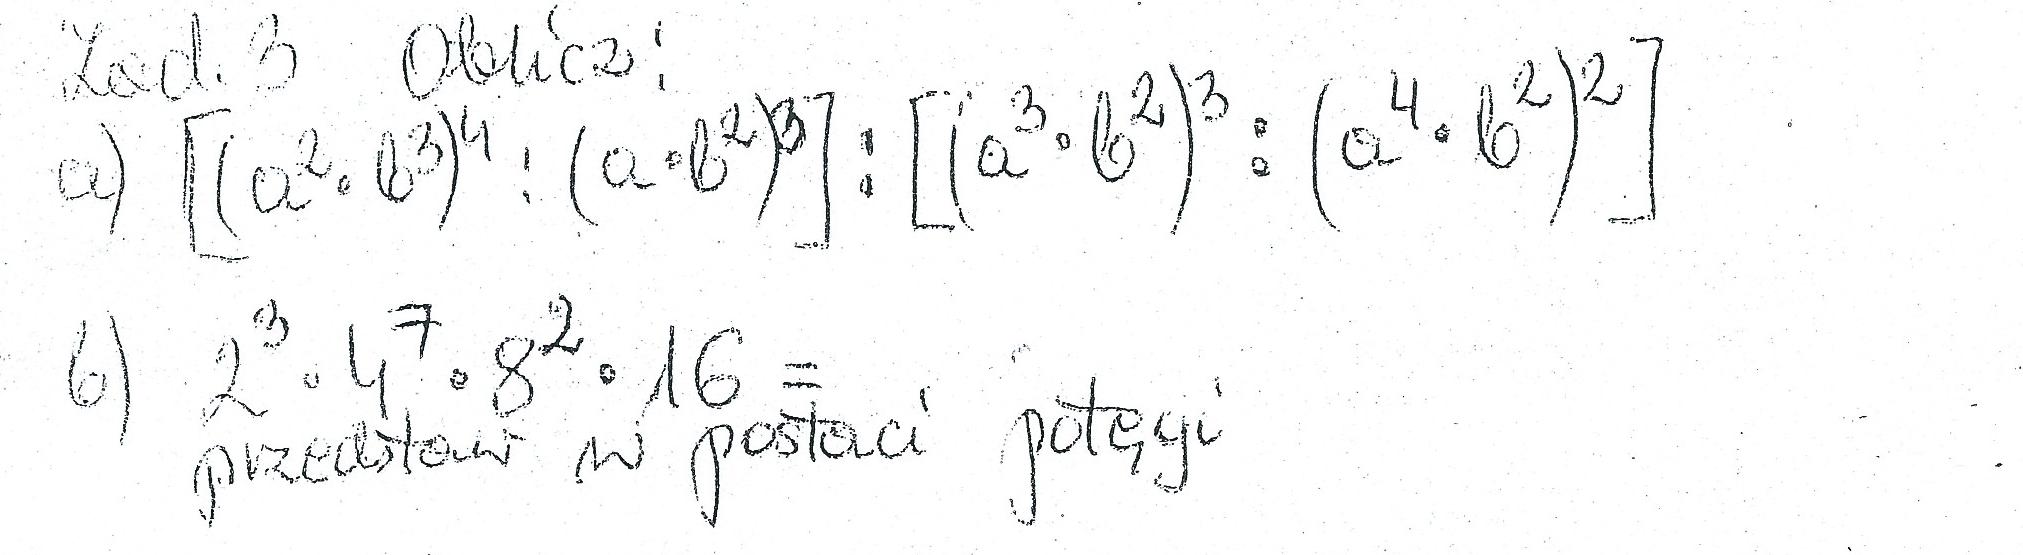 Zad. 3 Oblicz:
a) [(a²·b³)⁴ : (a·b²)³] : [(a³·b²)³ : (a⁴·b²)²]
b) 2³·4⁷·8²·16 =
przedstaw w postaci potęgi